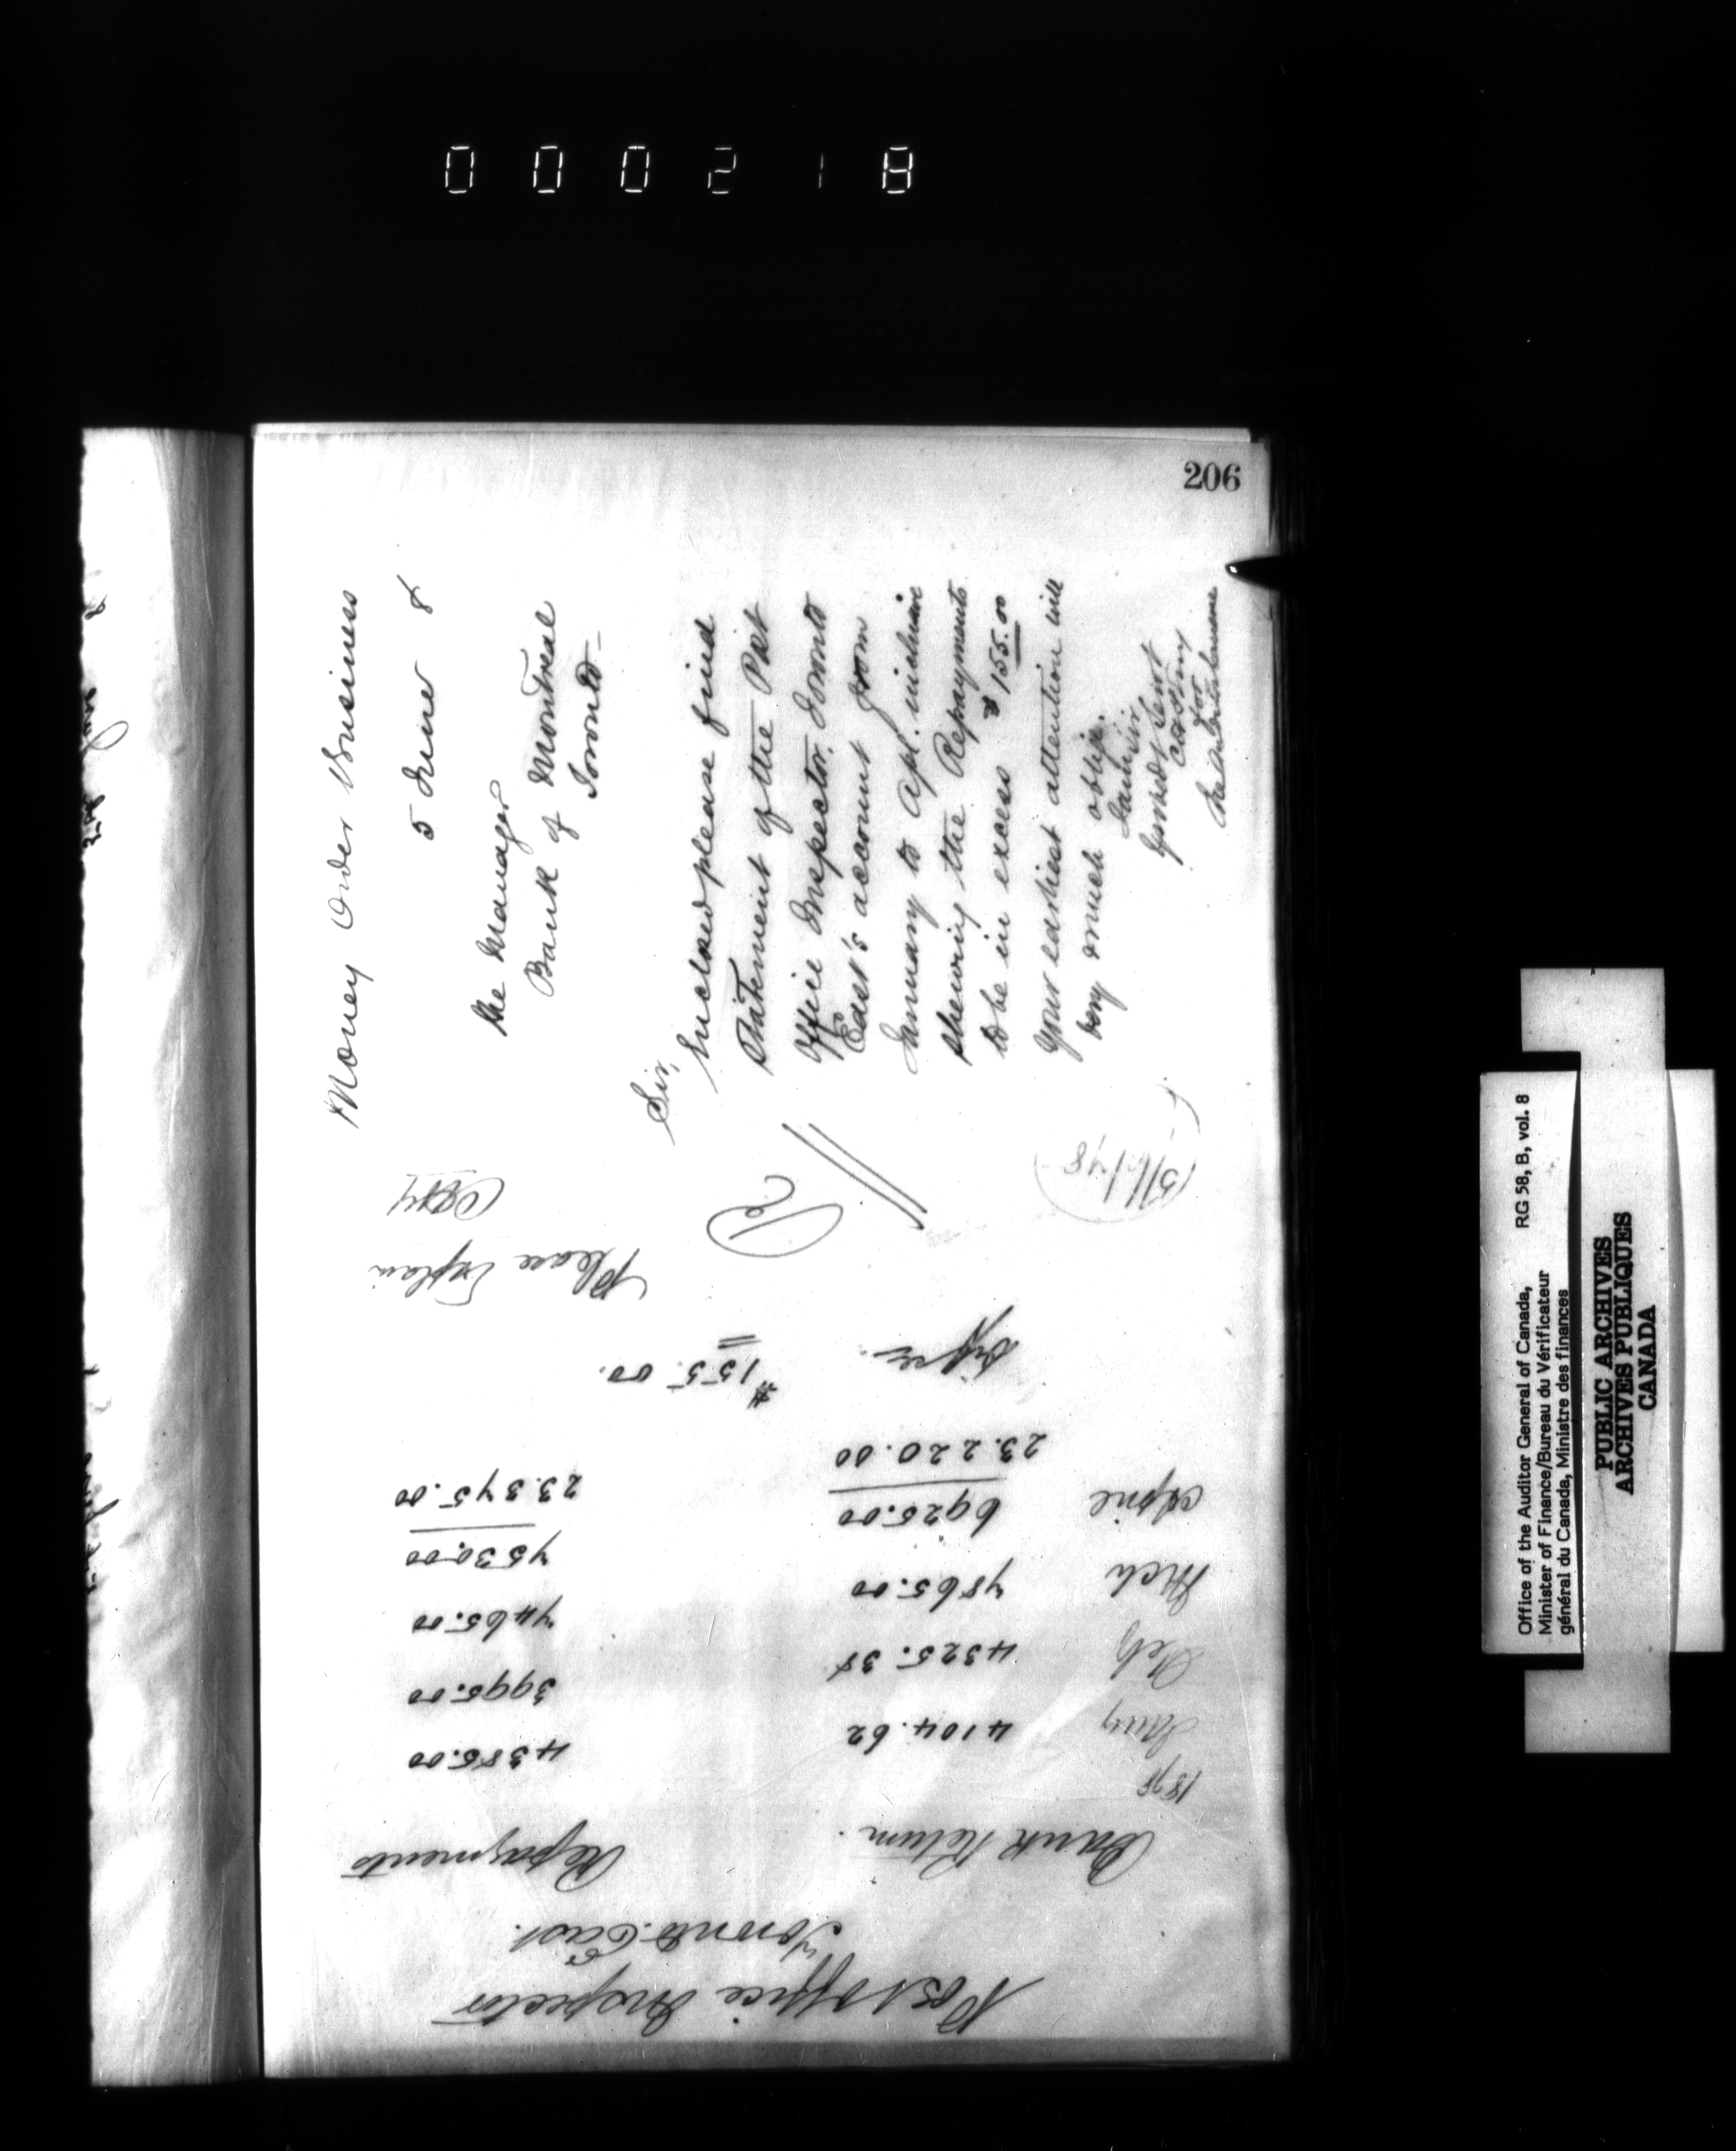 000218
206
Money Order Business
5 June 8
The Manager
Bank of Montreal
Toronto
Sir,
Enclosed please find
Statement of the Post
Office Inspector, Toronto
East's account from
January to Apl. inclusive
shewing the Repayments
to be in excess $155.00
Your earliest attention will
very much oblige.
I am sir
Yr obedt Servt
for
Post Office Inspector
Toronto East.
Bank Return. Repayments
1878
Jany 4104.62 4385.00
Feb 4325.38 3995.00
Mch 7865.00 7465.00
April 6925.00 7530.00
23.220.00 23.375.00
Diffce. $155.00.
Please Explain
5/6/78
Office of the Auditor General of Canada, RG 58, B, vol. 8
Minister of Finance/Bureau du Vérificateur
général du Canada, Ministre des finances
PUBLIC ARCHIVES
ARCHIVES PUBLIQUES
CANADA